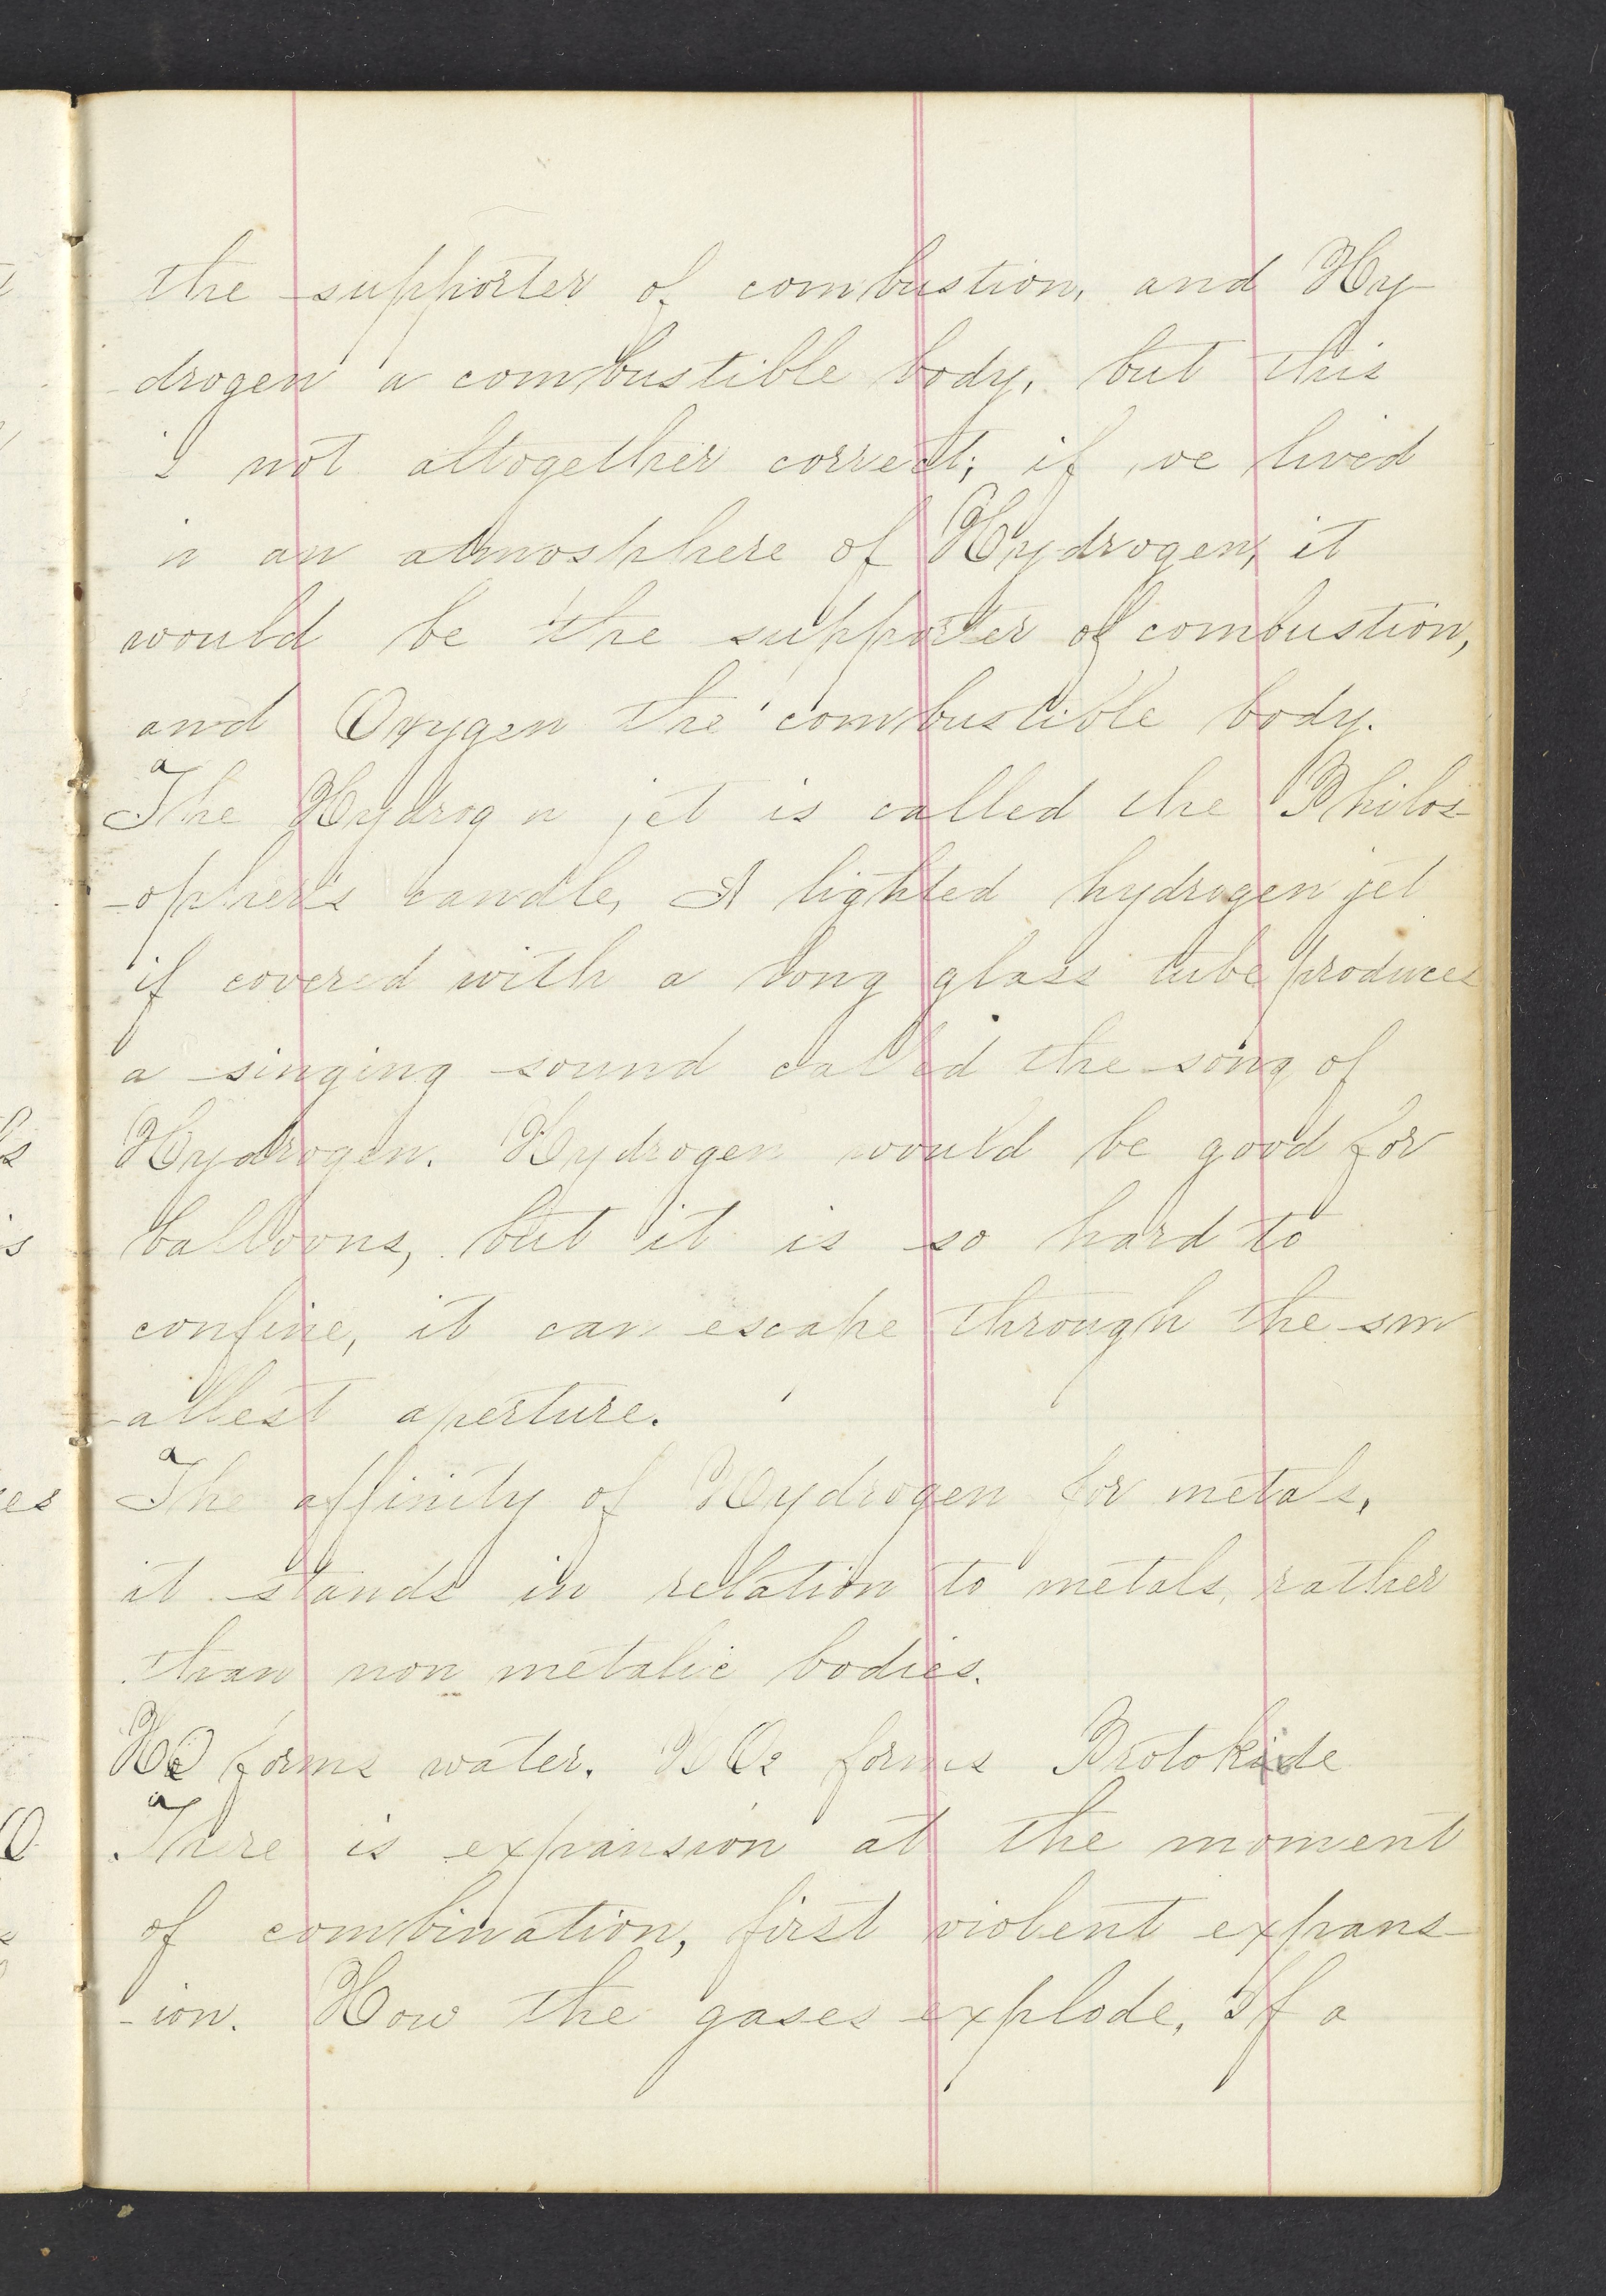 the supporter of combustion, and Hy-
drogen a combustible body, but this
is not altogether correct; if we lived
in an atmosphere of Hydrogen, it
would be the supporter of combustion,
and Oxygen the combustible body.
a
The Hydrogen jet is called the Philos-
-opher's candle, A lighted hydrogen jet
if covered with a long glass tube produces
a singing sound called the song of
Hydrogen. Hydrogen would be good for
balloons, but it is so hard to
confine, it can escape through the sm
-allest aperture.
a
The affinity of Hydrogen for metals,
it stands in relation to metals, rather
than non metalic bodies.
HO forms water. HO2 forms Protokide
a
There is expansion at the moment
of combination, first violent expans-
-ion. How the gases explode, If a